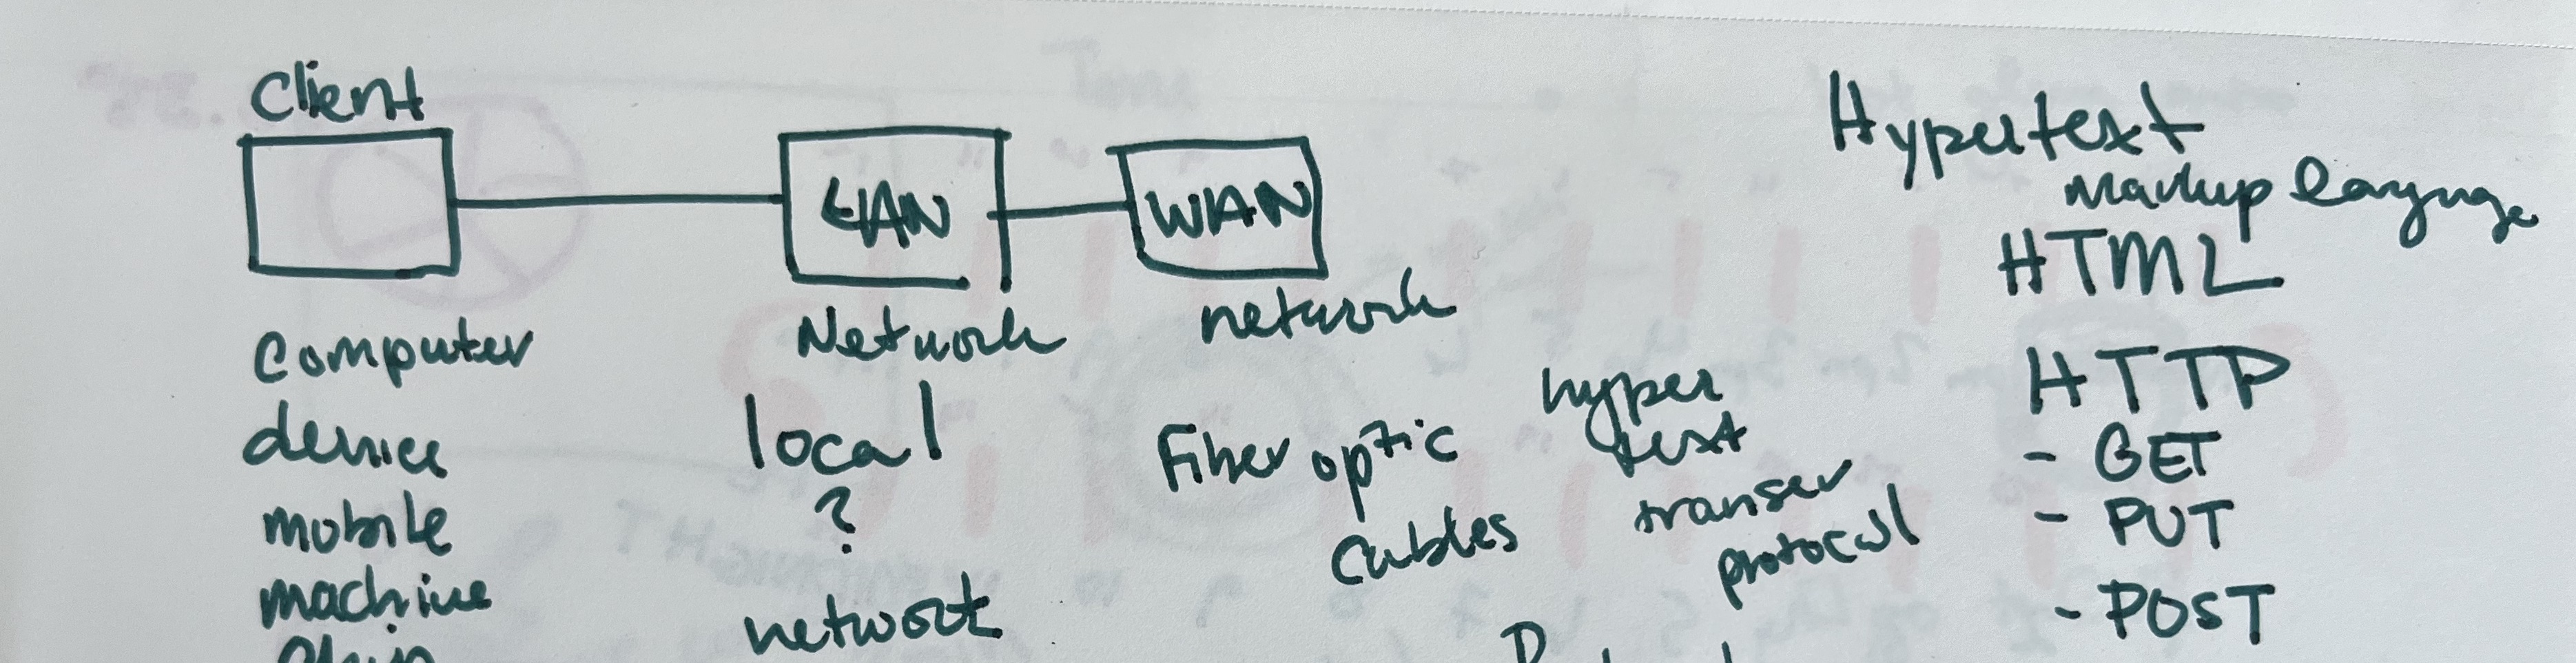 Client
LAN
WAN
Computer
device
mobile
machine
Network
local
?
network
network
Fiber optic
cables
hyper
text
transer
protocol
Hypertext
markup language
HTML
HTTP
- GET
- PUT
- POST